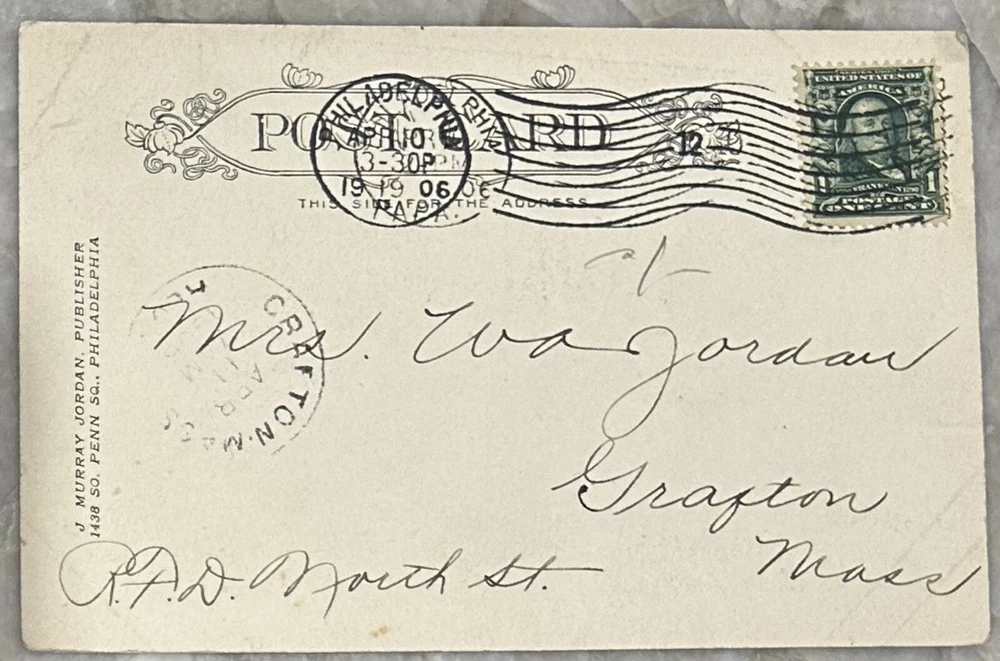 POST CARD
THIS SIDE FOR THE ADDRESS
PHILADELPHIA
APR 10
3-30P
1906
PA.
12
UNITED STATES OF
AMERICA
FRANKLIN
1 1
POSTAGE
ONE CENT
GRAFTON. MASS
APR
11
Mrs. Wa Jordan
Grafton
Mass
R.F.D. North St.
J MURRAY JORDAN. PUBLISHER
1438 SO. PENN SQ., PHILADELPHIA